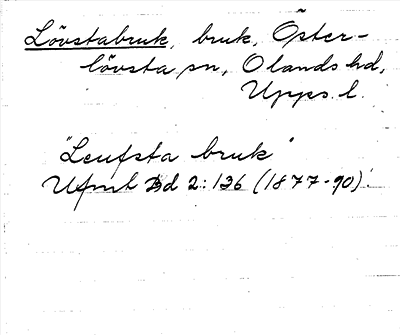 Lövstabruk, bruk, Öster-
lövsta sn, Olands hd,
Upps. l.
"Leufsta bruk"
Ufmt Bd 2:136 (1877-90).